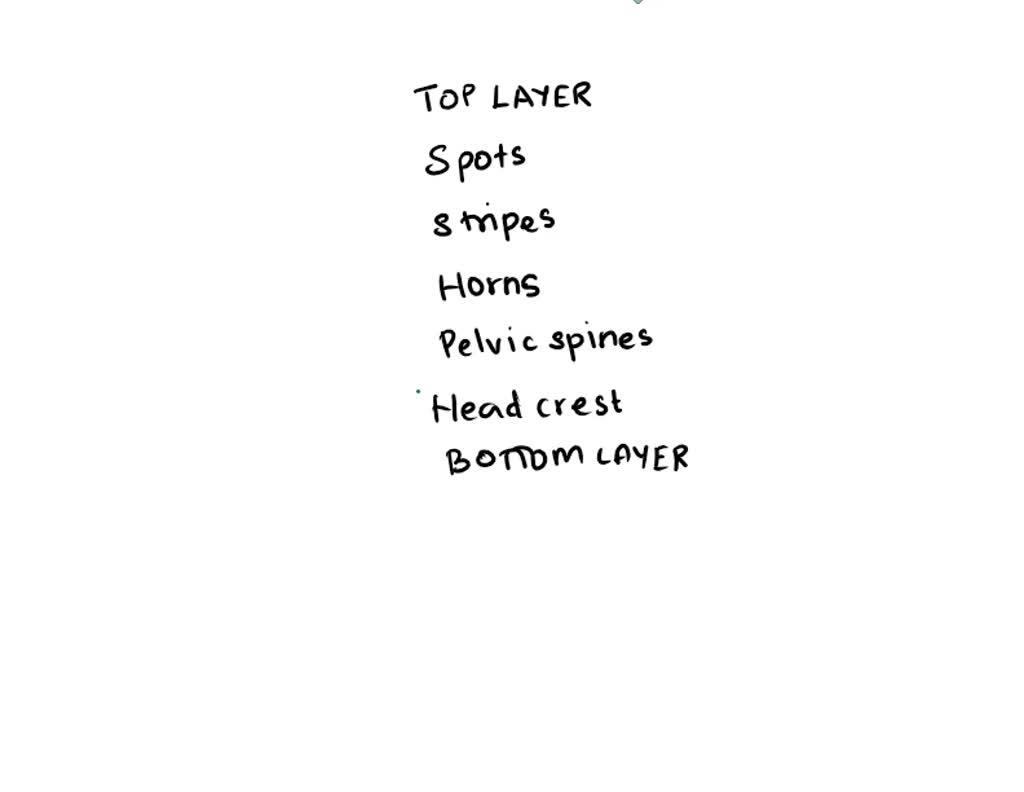 TOP LAYER
Spots
stripes
Horns
Pelvic spines
Head crest
BOTTOM LAYER